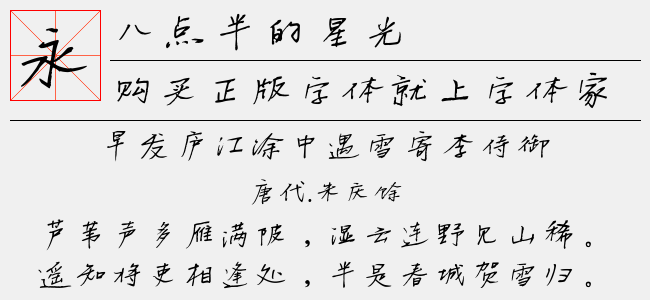 永
八点半的星光
购买正版字体就上字体家
早发庐江涂中遇雪寄李侍御
唐代.朱庆馀
芦苇声多雁满陂，湿云连野见山稀。
遥知将吏相逢处，半是春城贺雪归。